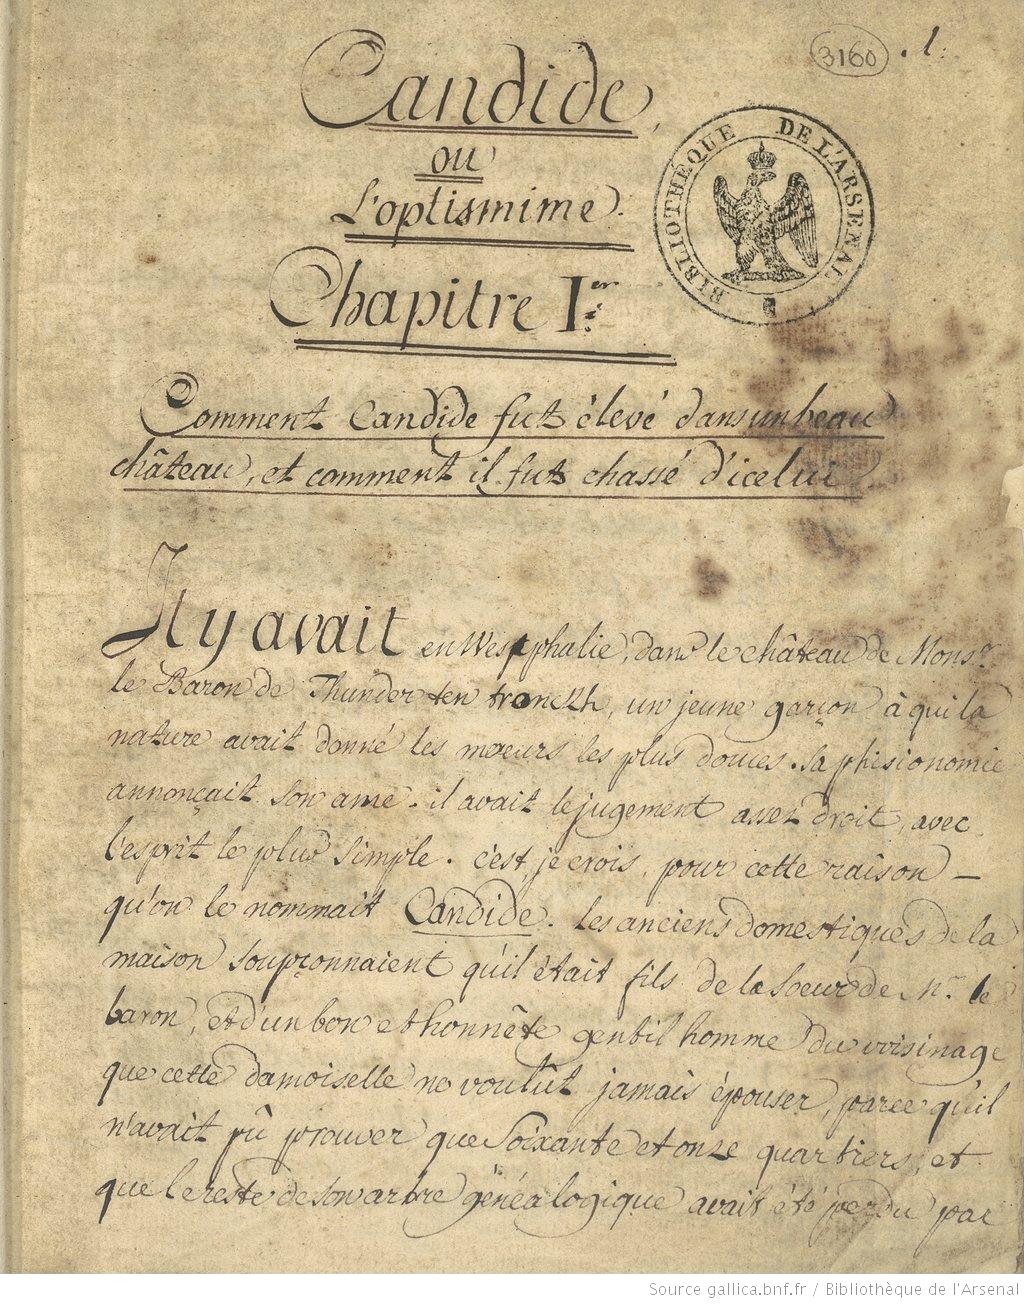 3160 . 1.
Candide,
ou
L'optismime.
Chapitre Ier
BIBLIOTHÈQUE DE L'ARSENAL
Comment Candide fut élevé dans un beau
château, et comment il fut chassé d'icelui.
Il y avait en Westphalie, dans le château de Monsr.
le Baron de Thunder ten tronckh, un jeune garçon à qui la
nature avait donné les mœurs les plus douces. sa phisionomie
annonçait son ame. il avait le jugement assez droit, avec
l'esprit le plus simple. c'est, je crois, pour cette raison —
qu'on le nommait Candide. les anciens domestiques de la
maison soupçonnaient qu'il était fils de la soeur de Mr. le
baron, et d'un bon et honnête gentil homme du voisinage
que cette damoiselle ne voulût jamais épouser, parce qu'il
n'avait pû prouver que soixante et onze quartiers, et
que le reste de son arbre généalogique avait été perdu par
Source gallica.bnf.fr / Bibliothèque de l'Arsenal